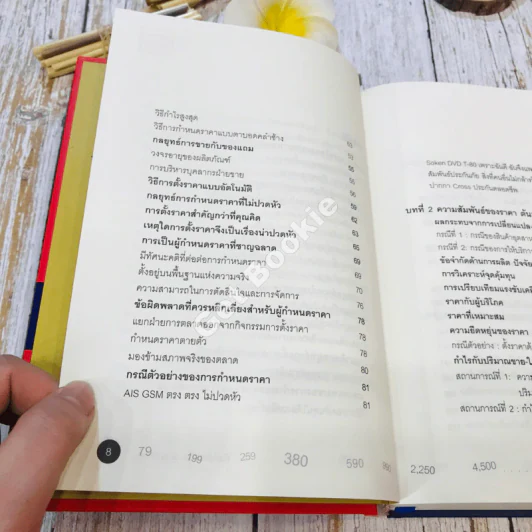 วิธีกำไรสูงสุด
วิธีการกำหนดราคาแบบตาบอดคลำช้าง
กลยุทธ์การขายกับของแถม
วงจรอายุของผลิตภัณฑ์
การบริหารบุคลากรฝ่ายขาย
วิธีการตั้งราคาแบบอัตโนมัติ 59
กลยุทธ์การกำหนดราคาที่ไม่ปวดหัว 62
การตั้งราคาสำคัญกว่าที่คุณคิด 62
เหตุใดการตั้งราคาจึงเป็นเรื่องน่าปวดหัว 63
การเป็นผู้กำหนดราคาที่ชาญฉลาด 69
มีทัศนะคติที่ดีต่อการกำหนดราคา 69
ตั้งอยู่บนพื้นฐานแห่งความจริง 70
ความสามารถในการตัดสินใจและการจัดการ 76
ข้อผิดพลาดที่ควรหลีกเลี่ยงสำหรับผู้กำหนดราคา 78
แยกฝ่ายการตลาดออกจากกิจกรรมการตั้งราคา 78
กำหนดราคาตายตัว 78
มองข้ามสภาพจริงของตลาด 80
กรณีตัวอย่างของการกำหนดราคา 81
AIS GSM ตรง ตรง ไม่ปวดหัว 81
8 79 199 259 380 590
Get Bookie
Soken DVD T-80
ปากกา Cross ประกันตลอดชีพ
บทที่ 2 ความสัมพันธ์ของราคา
ผลกระทบจากการเปลี่ยนแปลง
กรณีที่ 1: กรณีของสินค้า
กรณีที่ 2: กรณีของการให้บริการ
ข้อจำกัดด้านการผลิต
การวิเคราะห์จุดคุ้มทุน
การเปรียบเทียมแรงขับเคลื่อน
ราคากับผู้บริโภค
ราคาที่เหมาะสม
ความยืดหยุ่นของราคา
กรณีตัวอย่าง: ตั้งราคา
กำไรกับปริมาณขาย
สถานการณ์ที่ 1: ความ
ปริม
สถานการณ์ที่ 2: กำไ
2,250 4,500